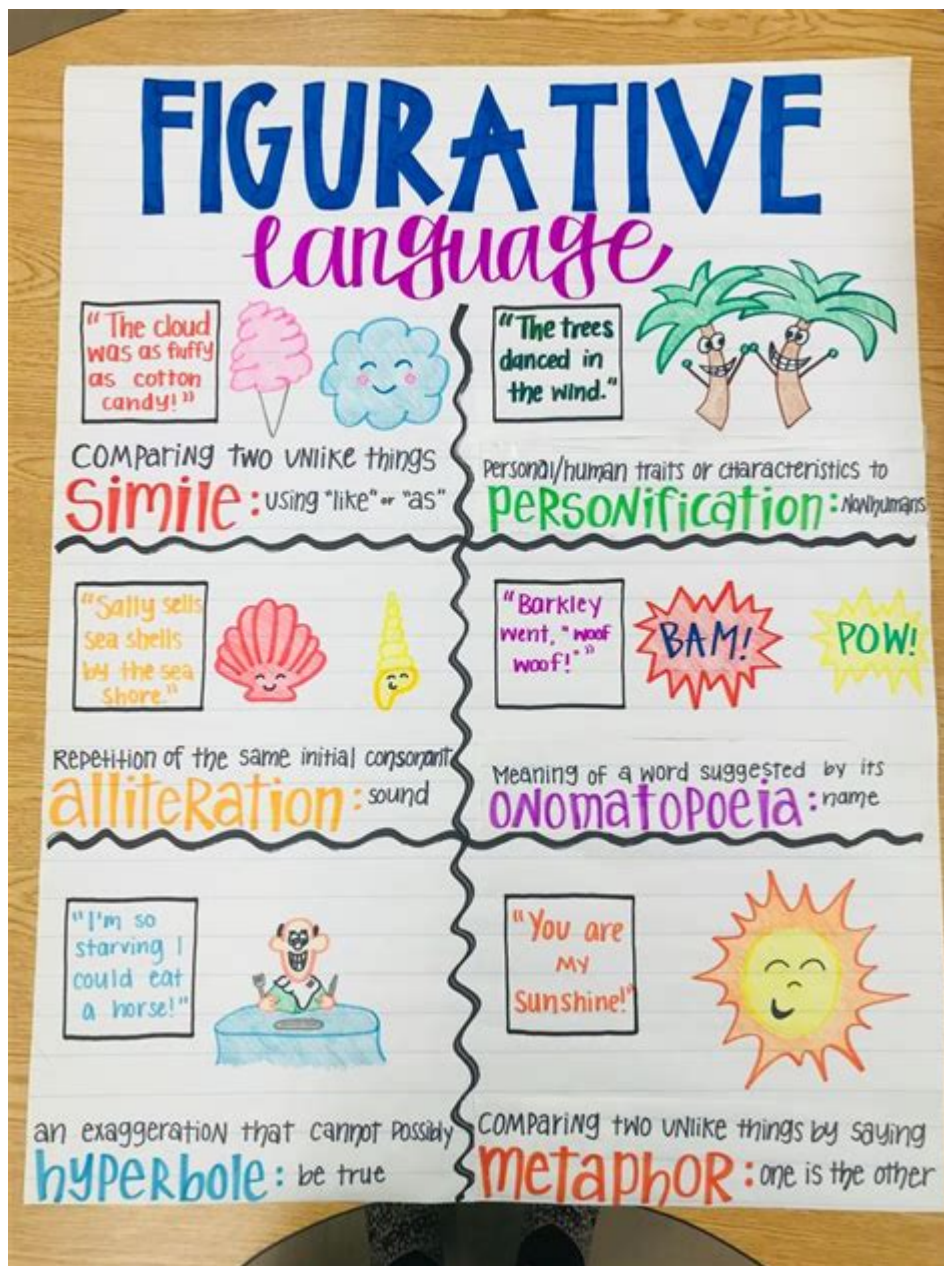 FIGURATIVE
language
"The cloud
was as fluffy
as cotton
candy!"
COMPARING TWO UNlike things
Simile: using "like" or "as"
"The trees
danced in
the wind."
Personal/human traits or characteristics to
PERSONification: Nonhumans
"Sally sells
sea shells
by the sea
shore."
Repetition of the same initial consonant
alliteration: sound
"Barkley
went, "woof
woof!""
BAM!
POW!
Meaning of a word suggested by its
ONomatopoeia: name
"I'm so
starving I
could eat
a horse!"
an exaggeration that cannot possibly
hyperbole: be true
"You are
my
Sunshine!"
COMPARING two UNlike things by saying
metaphor: one is the other